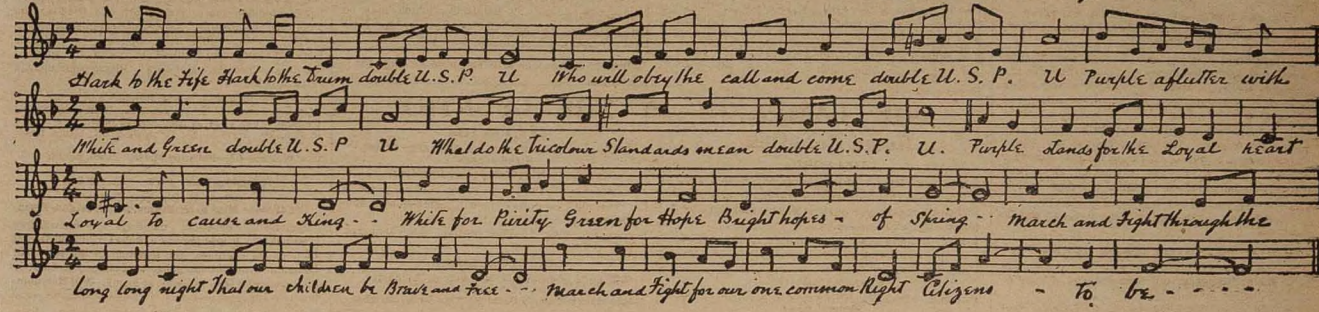 Hark to the Fife Hark to the Drum double U.S.P. U Who will obey the call and come double U. S. P. U Purple aflutter with
White and Green double U. S. P U What do the tricolour Standards mean double U.S.P. U. Purple stands for the Loyal heart
Loyal to cause and King - - White for Purity Green for Hope Bright hopes - of Spring - - March and Fight through the
long long night That our children be Brave and Free - - - March and Fight for our one common Right Citizens - to be - - - - -